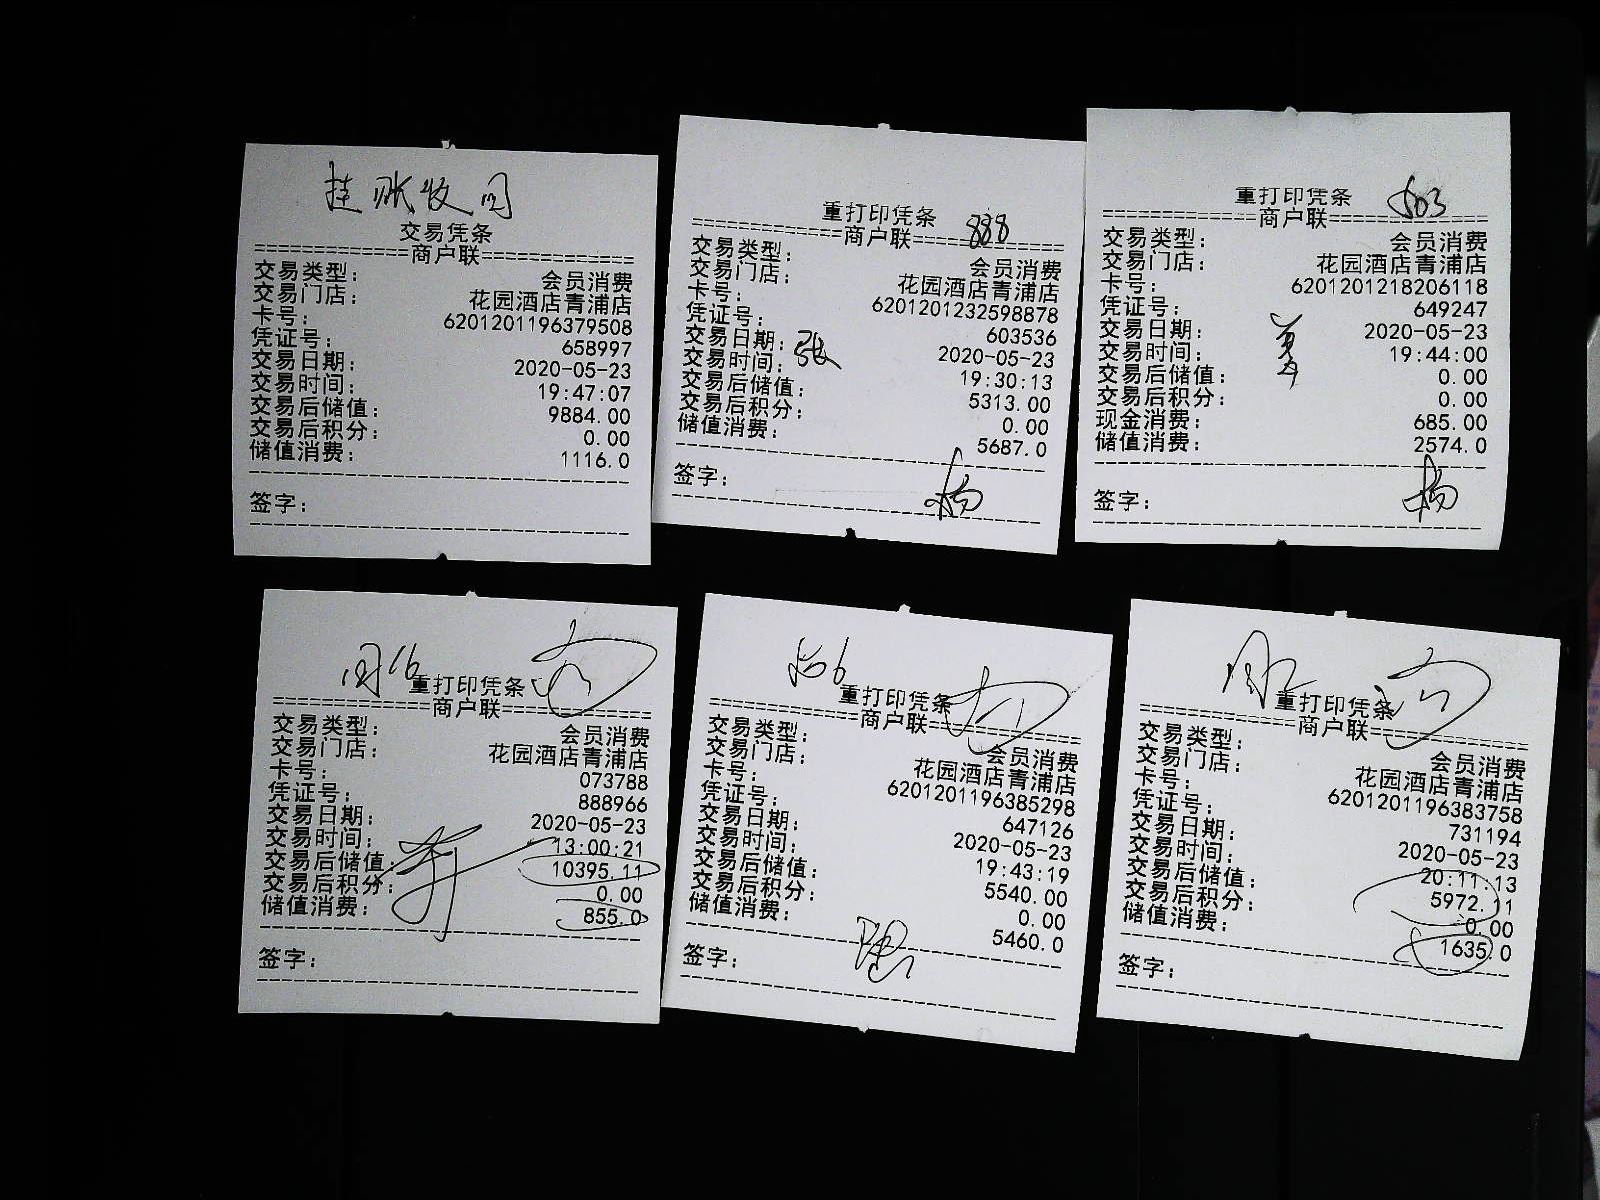 挂账收回
交易凭条
============商户联============
交易类型: 会员消费
交易门店: 花园酒店青浦店
卡号: 6201201196379508
凭证号: 658997
交易日期: 2020-05-23
交易时间: 19:47:07
交易后储值: 9884.00
交易后积分: 0.00
储值消费: 1116.0
签字:
重打印凭条 888
============商户联============
交易类型: 会员消费
交易门店: 花园酒店青浦店
卡号: 6201201232598878
凭证号: 603536
交易日期: 2020-05-23
张
交易时间: 19:30:13
交易后储值: 5313.00
交易后积分: 0.00
储值消费: 5687.0
签字: 杨
重打印凭条 503
============商户联============
交易类型: 会员消费
交易门店: 花园酒店青浦店
卡号: 6201201218206118
凭证号: 649247
交易日期: 2020-05-23
交易时间: 19:44:00
交易后储值: 0.00
交易后积分: 0.00
现金消费: 685.00
储值消费: 2574.0
签字: 杨
重打印凭条
============商户联============
交易类型: 会员消费
交易门店: 花园酒店青浦店
卡号: 073788
凭证号: 888966
交易日期: 2020-05-23
交易时间: 13:00:21
交易后储值: 10395.11
交易后积分: 0.00
储值消费: 855.0
签字:
重打印凭条
============商户联============
交易类型: 会员消费
交易门店: 花园酒店青浦店
卡号: 6201201196385298
凭证号: 647126
交易日期: 2020-05-23
交易时间: 19:43:19
交易后储值: 5540.00
交易后积分: 0.00
储值消费: 5460.0
签字:
重打印凭条
============商户联============
交易类型: 会员消费
交易门店: 花园酒店青浦店
卡号: 6201201196383758
凭证号: 731194
交易日期: 2020-05-23
交易时间: 20:11:13
交易后储值: 5972.11
交易后积分: 0.00
储值消费: 1635.0
签字: